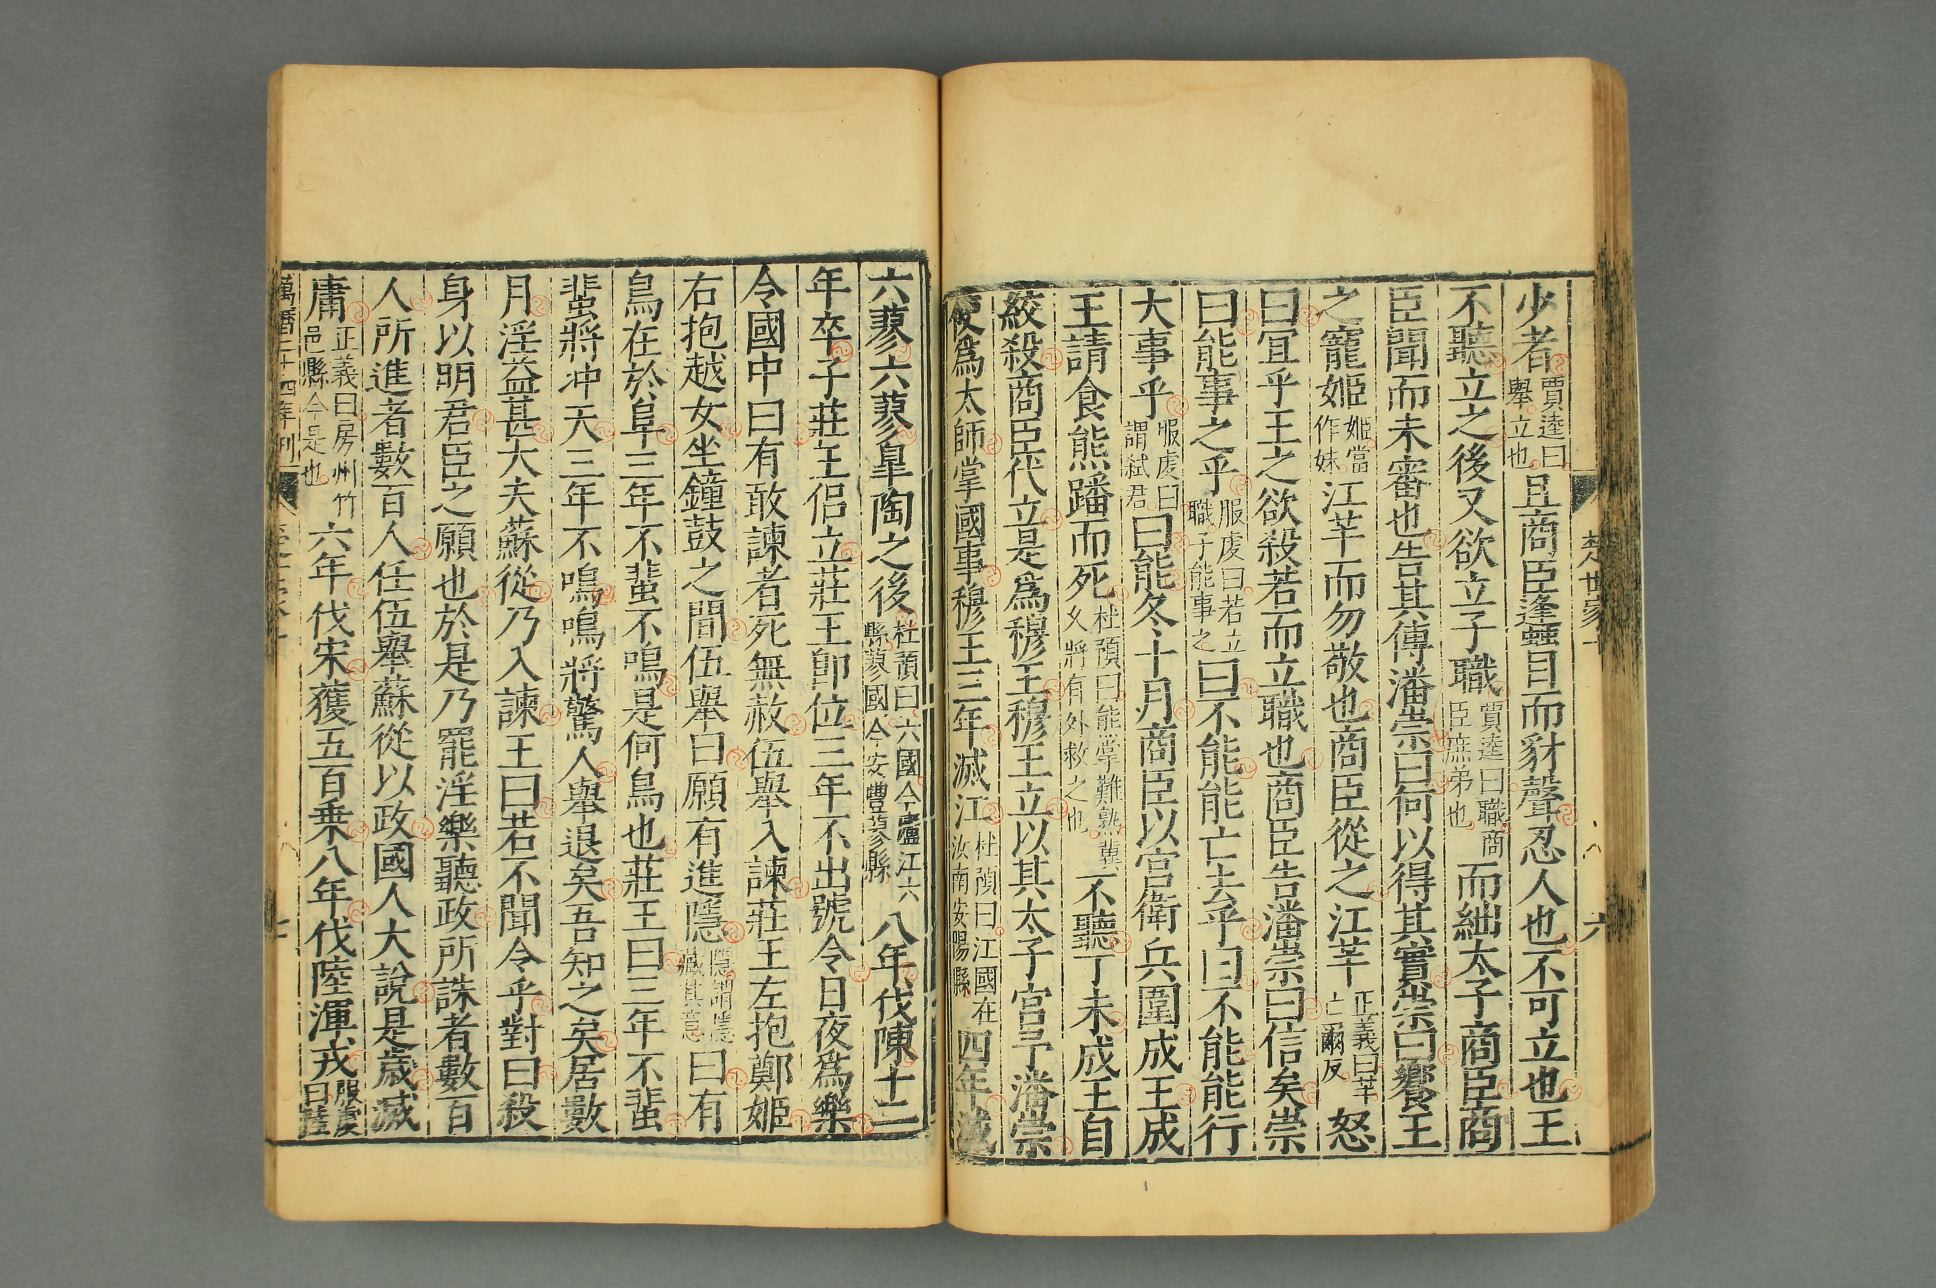 少者賈逵曰舉立也且商臣蠭目而豺聲忍人也不可立也王
不聽立之後又欲立子職賈逵曰職商臣庶弟也而絀太子商臣商
臣聞而未審也告其傅潘崇曰何以得其實崇曰饗王
之寵姬姬當作妹江芊而勿敬也商臣從之江芊正義曰芊亡爾反怒
曰宜乎王之欲殺若而立職也商臣告潘崇曰信矣崇
曰能事之乎服虔曰若立職子能事之曰不能能亡去乎曰不能能行
大事乎服虔曰謂弒君曰能冬十月商臣以宮衛兵圍成王成
王請食熊蹯而死杜預曰熊掌難熟冀久將有外救之也不聽丁未成王自
絞殺商臣代立是爲穆王穆王立以其太子宮予潘崇
使爲太師掌國事穆王三年滅江杜預曰江國在汝南安陽縣四年滅
楚世家十
六
六蓼六蓼皐陶之後杜預曰六國今廬江六縣蓼國今安豐蓼縣八年伐陳十二
年卒子莊王侣立莊王卽位三年不出號令日夜爲樂
令國中曰有敢諫者死無赦伍舉入諫莊王左抱鄭姬
右抱越女坐鐘鼓之間伍舉曰願有進隱隱謂隱藏其意曰有
鳥在於阜三年不蜚不鳴是何鳥也莊王曰三年不蜚
蜚將冲天三年不鳴鳴將驚人舉退矣吾知之矣居數
月淫益甚大夫蘇從乃入諫王曰若不聞令乎對曰殺
身以明君臣之願也於是乃罷淫樂聽政所誅者數百
人所進者數百人任伍舉蘇從以政國人大說是歲滅
庸正義曰房州竹邑縣今是也六年伐宋獲五百乗八年伐陸渾戎服虔曰陸
萬曆二十四年刊
七